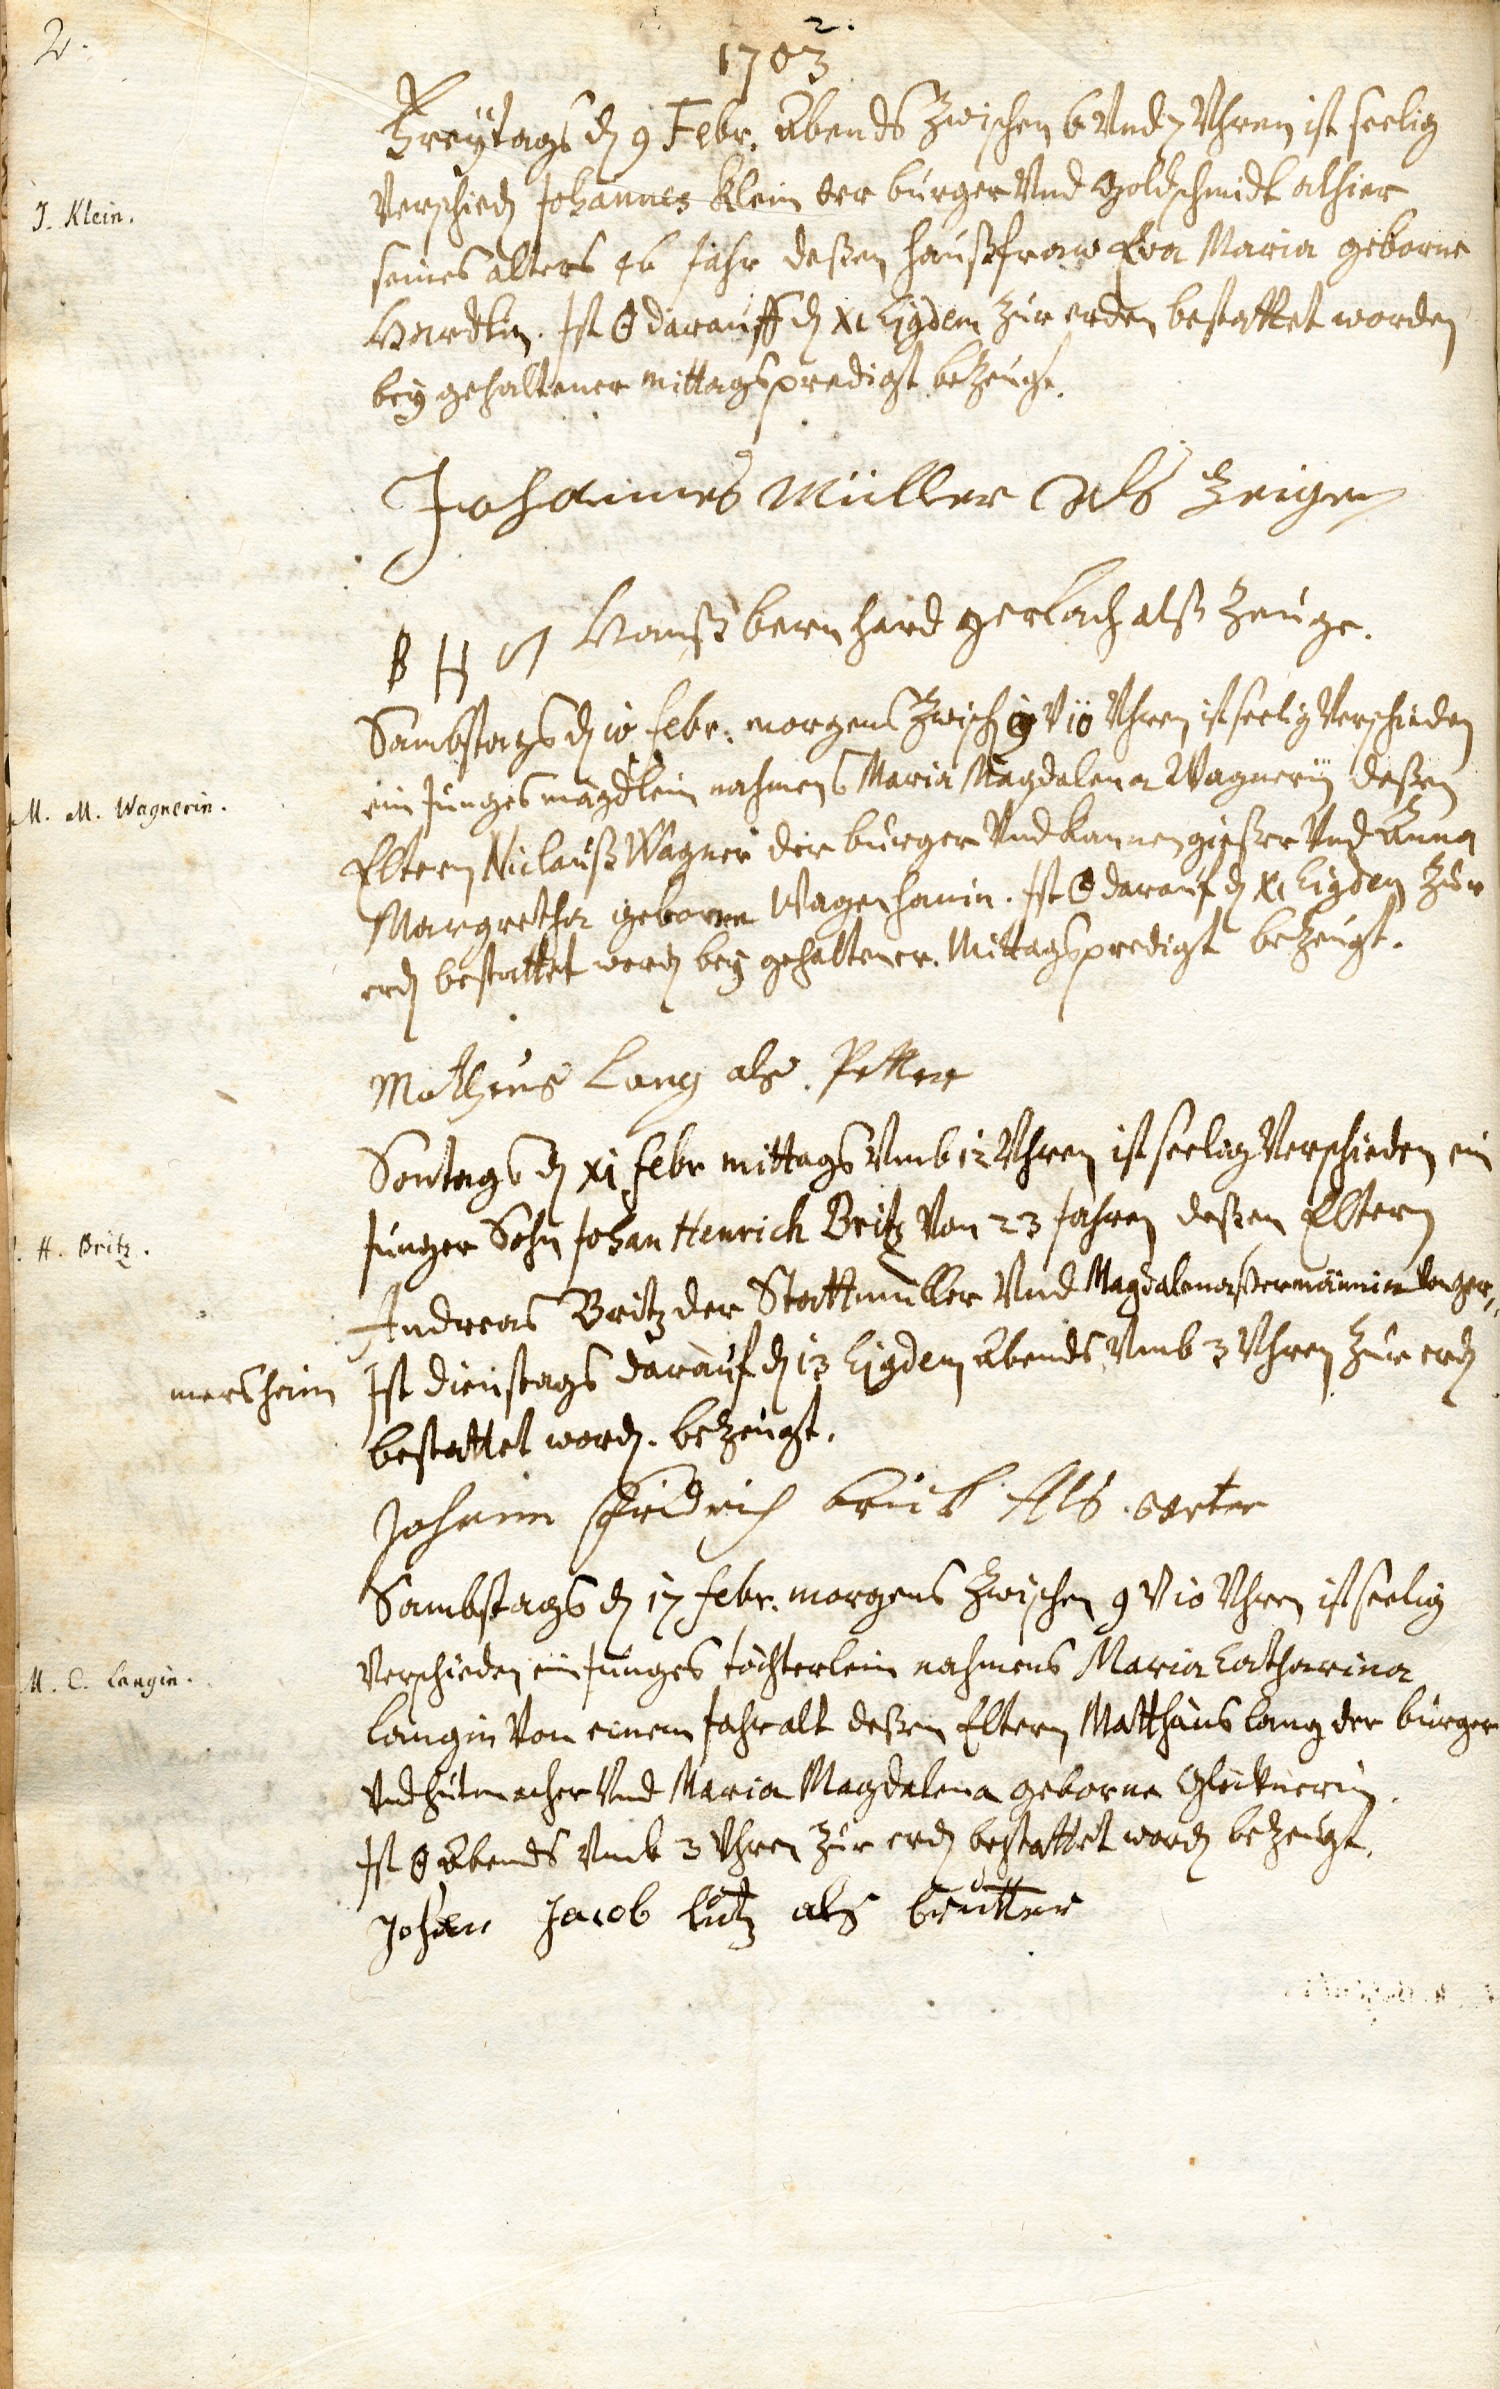 2.
2.
1703
Freytags dħ 9 Febr. Abends Zwischen 6 Vnd 7 Vhren ist seelig
J. Klein.
Verschiedħ Johannes Klein der burger Vnd Goldschmidt alhier
seines alters 46 Jahr deßen haußfraw Eva Maria geborne
Ist darauff dħ XI Eigdem Zur erden bestattet worden
bey gehaltener mittagspredigt bezeugt.
Johannes Müller Als Zeigen
B H Hanß bernhard gerlach alß Zeuge.
Sambstags dħ 10 febr. morgens Zwischħ 9 V 10 Vhren ist seelig Verschieden
M. M. Wagnerin.
ein Junges mägdlein nahmens Maria Magdalena Wagnerin deßen
Eltern Niclauß Wagner der burger Vnd kannengießer Vnd Anna
Margretha geborne Wagenhanin. Ist darauf dħ XI Eigdem Zur
erdħ bestattet wordħ bey gehaltener Mittagspredigt bezeugt.
Matheus Lang als Petter
Sontags dħ XI febr mittags Vmb 12 Vhren ist seelig Verschieden ein
H. Britz.
Junger Sohn Johan Henrich Britz Von 23 Jahren deßen Eltern
Andreas Britz der Stattmüller Vnd Magdalena von ger„
mersheim
Ist dienstags darauf dħ 13 Eigdem Abends Vmb 3 Vhren Zur erdħ
bestattet wordħ. bezeugt.
Johann fridrich brück Als
Sambstags dħ 17 febr. morgens Zwischen 9 V 10 Vhren ist seelig
Verschieden ein Junges töchterlein nahmens Maria Catharina
M. C. Langin.
Langin Von einem Jahr alt deßen Eltern Matthäus Lang der burger
Vnd hutmacher Vnd Maria Magdalena geborne Glöcknerin.
Ist Abends Vmb 3 Vhren Zur erdħ bestattet wordħ bezeugt.
Johan Jacob Lutz als